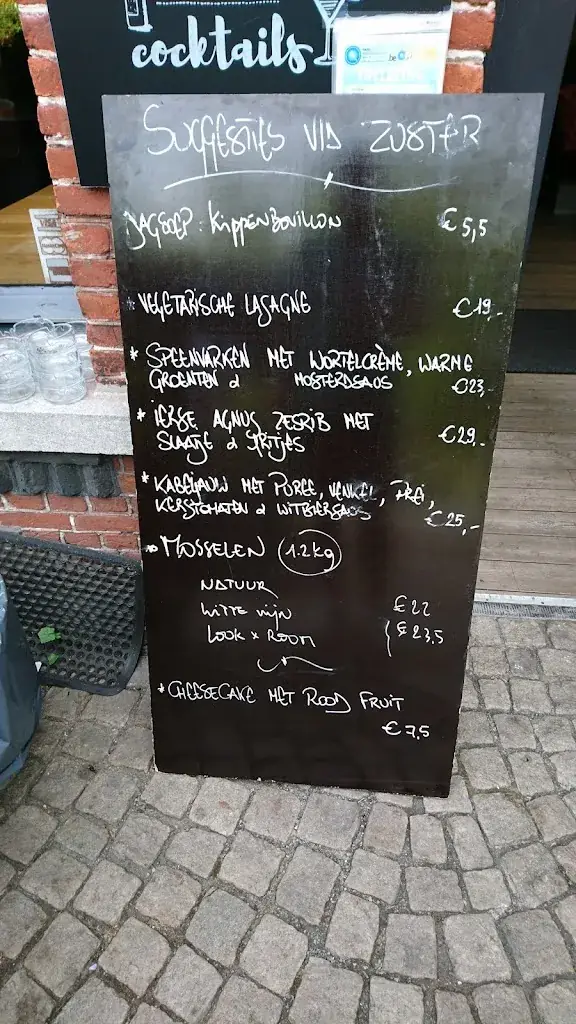 cocktails
SUGGESTIES V/D ZUSTER
DAGSOEP: KIPPENBOUILLON €5,5
* VEGETARISCHE LASAGNE €19,-
* SPEENVARKEN MET WORTELCRÈME, WARME
GROENTEN & MOSTERDSAUS €23,-
* IERSE AGNUS ZESRIB MET
SLAATJE & FRITJES €29,-
* KABELJAUW MET PUREE, VENKEL, PREI,
KERSTOMATEN & WITBIERSAUS €25,-
* MOSSELEN 1.2kg
NATUUR €22
WITTE WIJN
LOOK & ROOM €23,5
* CHEESECAKE MET ROOD FRUIT
€7,5